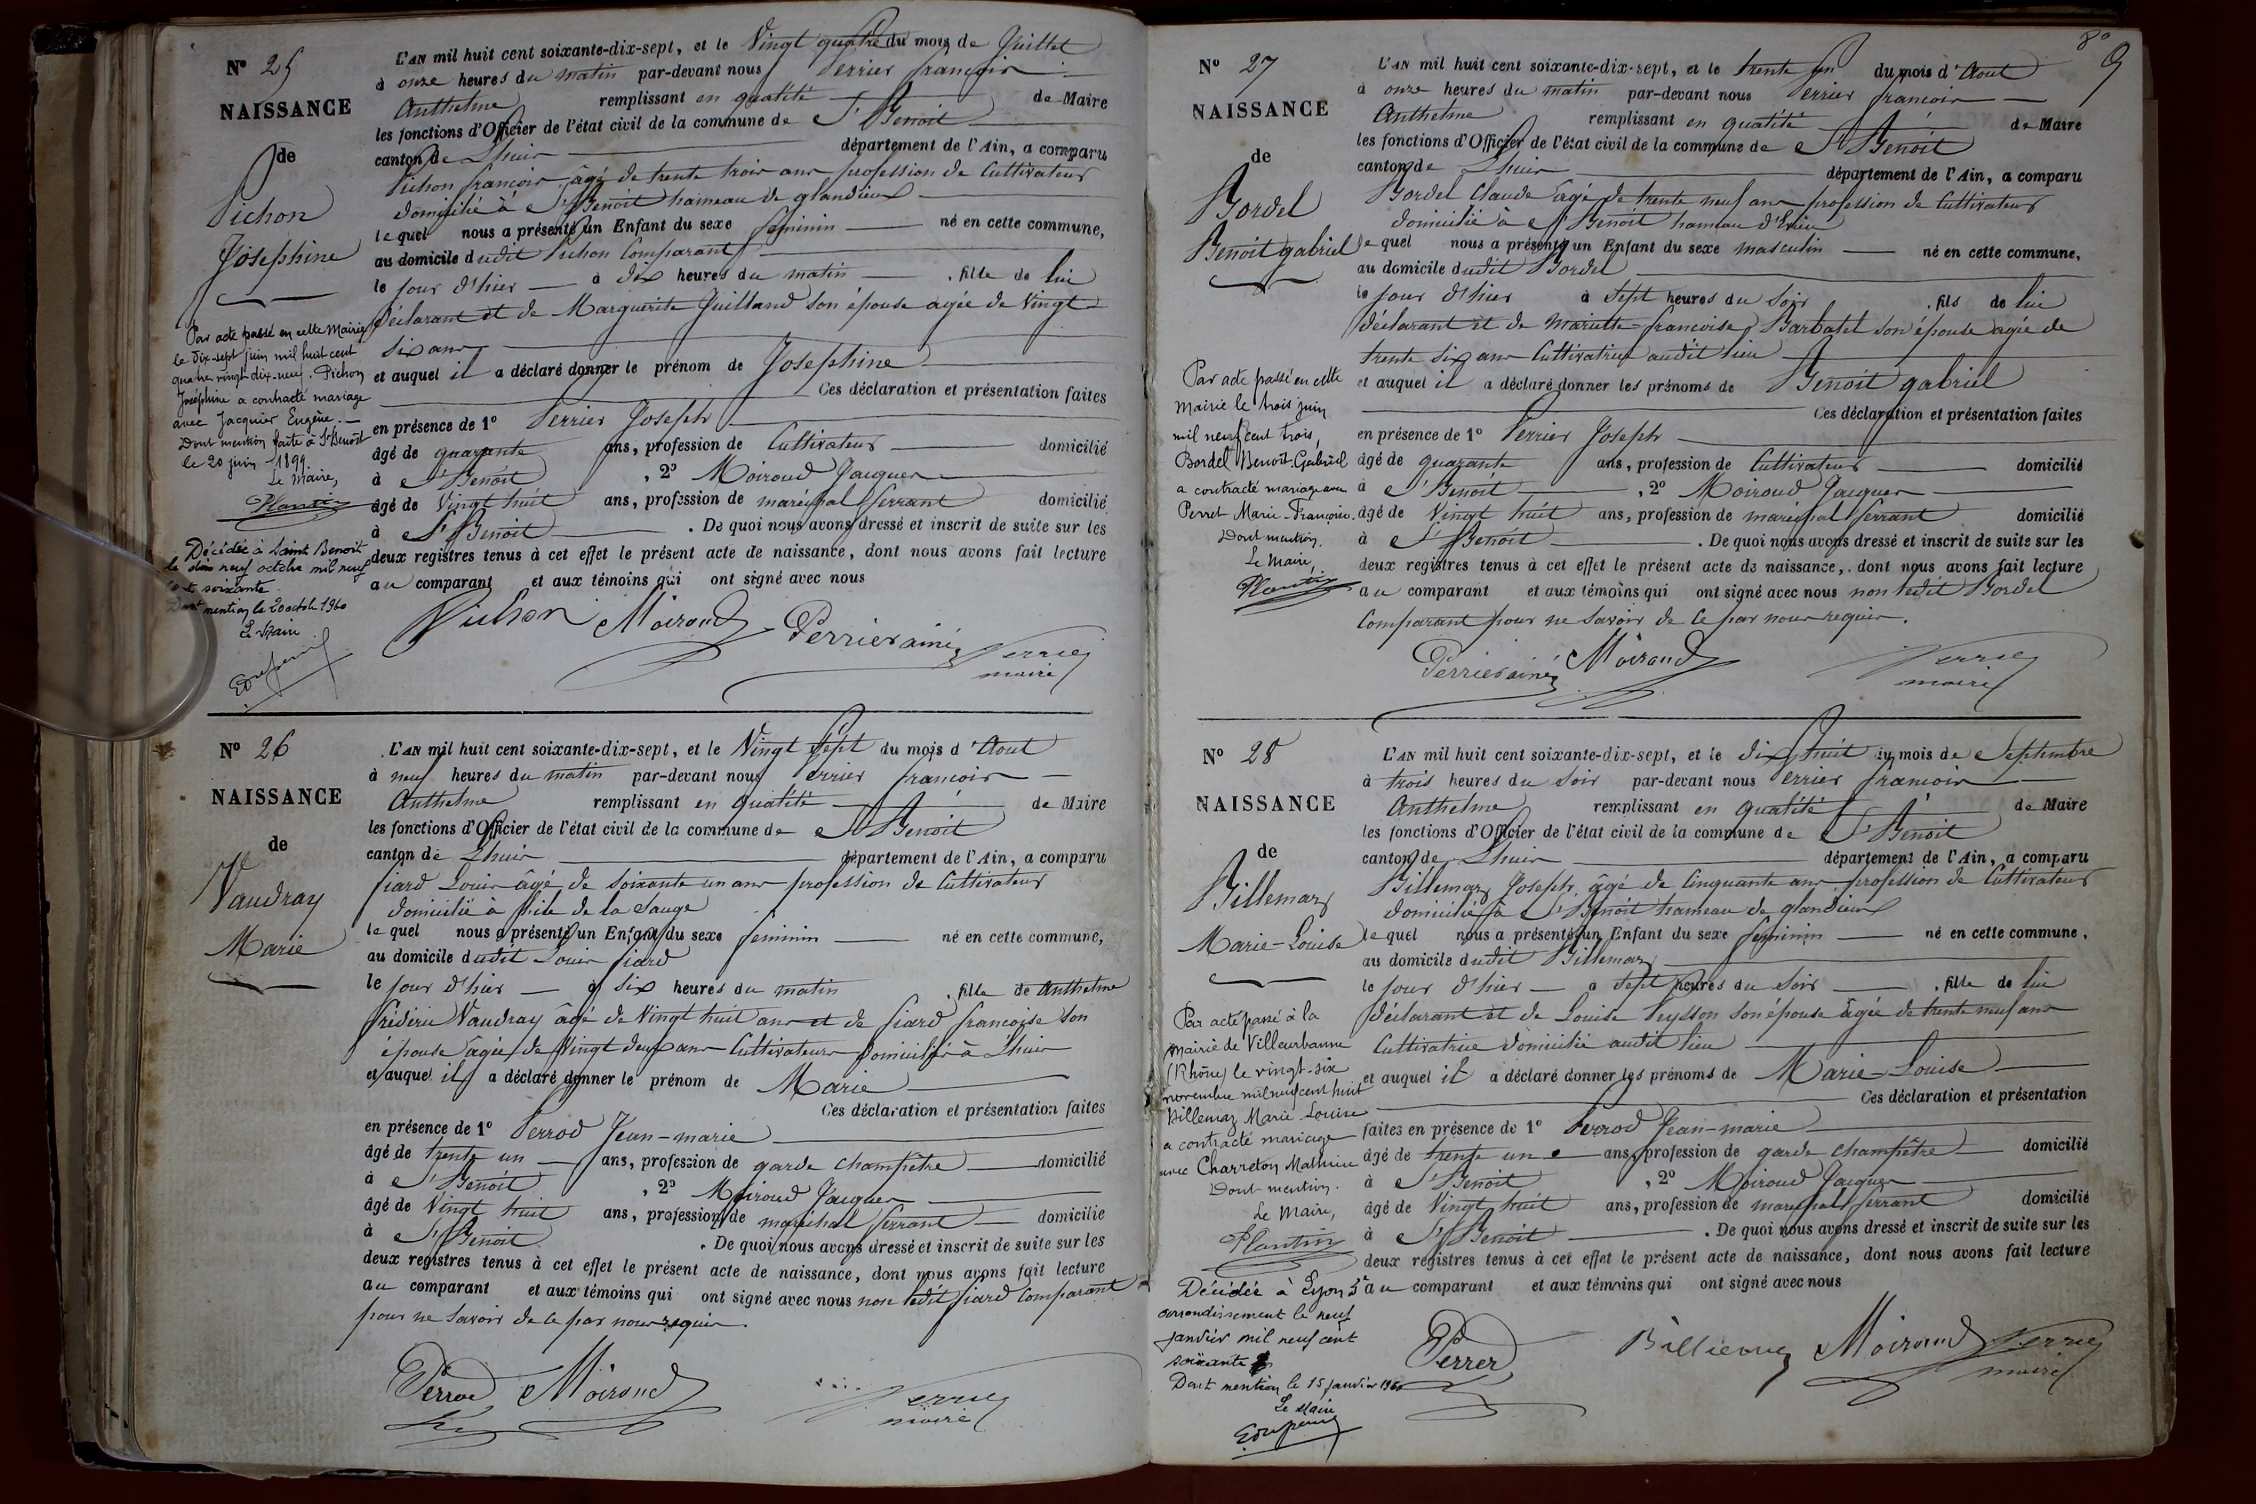 Nº 25
NAISSANCE
de
Pichon
Joséphine
Par acte passé en cette Mairie
le dix-sept juin mil huit cent
quatre vingt-dix-neuf. Pichon
Joséphine a contracté mariage
avec Jacquier Eugène. —
Dont mention faite à St Benoît
le 20 juin 1899.
Le Maire,
Plantin
Décédée à Saint Benoit
le dix neuf octobre mil neuf
cent soixante
Dont mention le 20 octobre 1960
Le Maire
L'AN mil huit cent soixante-dix-sept, et le Vingt quatre du mois de Juillet
à onze heures du matin par-devant nous Perrier françois
Anthelme remplissant en qualité de Maire
les fonctions d'Officier de l'état civil de la commune de St Benoit
canton de Lhuis département de l'Ain, a comparu
Pichon françois âgé de trente trois ans profession de Cultivateur
domicilié à St Benoit hameau de glandieux
lequel nous a présenté un Enfant du sexe féminin né en cette commune,
au domicile dudit Pichon Comparant
le jour d'hier à dix heures du matin, fille de lui
déclarant et de Marguerite Juilland son épouse agée de Vingt
six ans
et auquel il a déclaré donner le prénom de Josephine
Ces déclaration et présentation faites
en présence de 1º Perrier Joseph
âgé de quarante ans, profession de Cultivateur domicilié
à St Benoit, 2º Moiroud Jacques
âgé de Vingt huit ans, profession de maréchal ferrant domicilié
à St Benoit. De quoi nous avons dressé et inscrit de suite sur les
deux registres tenus à cet effet le présent acte de naissance, dont nous avons fait lecture
au comparant et aux témoins qui ont signé avec nous
Pichon Moiroud Perrier ainé Perrier
maire
Nº 26
NAISSANCE
de
Vaudray
Marie
L'AN mil huit cent soixante-dix-sept, et le Vingt Sept du mois d'Aout
à neuf heures du matin par-devant nous Perrier françois
Anthelme remplissant en qualité de Maire
les fonctions d'Officier de l'état civil de la commune de St Benoit
canton de Lhuis département de l'Ain, a comparu
fiard Louis âgé de soixante un ans profession de Cultivateur
domicilié à l'ile de la Sauge
lequel nous a présenté un Enfant du sexe féminin né en cette commune,
au domicile dudit Louis fiard
le jour d'hier à six heures du matin, fille de Anthelme
frédéric Vaudray âgé de Vingt huit ans et de fiard françoise son
épouse agée de Vingt deux ans Cultivateurs domiciliés à Lhuis
et auquel il a déclaré donner le prénom de Marie
Ces déclaration et présentation faites
en présence de 1º Perrod Jean-marie
âgé de trente un ans, profession de garde champêtre domicilié
à St Benoit, 2º Moiroud Jacques
âgé de Vingt huit ans, profession de maréchal ferrant domicilié
à St Benoit. De quoi nous avons dressé et inscrit de suite sur les
deux registres tenus à cet effet le présent acte de naissance, dont nous avons fait lecture
au comparant et aux témoins qui ont signé avec nous non ledit fiard Comparant
pour ne savoir de ce par nous requis.
Perrod Moiroud Perrier
maire
9
Nº 27
NAISSANCE
de
Bordel
Benoit gabriel
Par acte passé en cette
Mairie le trois juin
mil neuf cent trois,
Bordel Benoît-Gabriel
a contracté mariage avec
Perret Marie-Françoise.
Dont mention.
Le Maire,
Plantin
L'AN mil huit cent soixante-dix-sept, et le trente un du mois d'Aout
à onze heures du matin par-devant nous Perrier françois
Anthelme remplissant en qualité de Maire
les fonctions d'Officier de l'état civil de la commune de St Benoit
canton de Lhuis département de l'Ain, a comparu
Bordel Claude âgé de trente neuf ans profession de Cultivateur
domicilié à St Benoit hameau d'Evieu
lequel nous a présenté un Enfant du sexe masculin né en cette commune,
au domicile dudit Bordel
le jour d'hier à Sept heures du Soir, fils de lui
déclarant et de Mariette françoise Barbatel son épouse agée de
trente six ans Cultivatrice audit lieu
et auquel il a déclaré donner les prénoms de Benoit gabriel
Ces déclaration et présentation faites
en présence de 1º Perrier Joseph
âgé de quarante ans, profession de Cultivateur domicilié
à St Benoit, 2º Moiroud Jacques
âgé de Vingt huit ans, profession de maréchal ferrant domicilié
à St Benoit. De quoi nous avons dressé et inscrit de suite sur les
deux registres tenus à cet effet le présent acte de naissance, dont nous avons fait lecture
au comparant et aux témoins qui ont signé avec nous non ledit Bordel
Comparant pour ne savoir de ce par nous requis.
Perrier ainé Moiroud Perrier
maire
Nº 28
NAISSANCE
de
Billemaz
Marie-Louise
Par acte passé à la
mairie de Villeurbanne
(Rhône) le vingt-six
novembre mil neuf cent huit
Billemaz Marie-Louise
a contracté mariage
avec Charreton Mathieu
Dont mention.
Le Maire,
Plantin
Décédée à Lyon 5e
arrondissement le neuf
janvier mil neuf cent
soixante
Dont mention le 15 janvier 1960
Le Maire
L'AN mil huit cent soixante-dix-sept, et le dix huit du mois de Septembre
à trois heures du Soir par-devant nous Perrier françois
Anthelme remplissant en qualité de Maire
les fonctions d'Officier de l'état civil de la commune de St Benoit
canton de Lhuis département de l'Ain, a comparu
Billemaz Joseph âgé de Cinquante ans profession de Cultivateur
domicilié à St Benoit hameau de glandieux
lequel nous a présenté un Enfant du sexe féminin né en cette commune,
au domicile dudit Billemaz
le jour d'hier à Sept heures du Soir, fille de lui
déclarant et de Louise Peysson son épouse âgée de trente neuf ans
Cultivatrice domiciliée audit lieu
et auquel il a déclaré donner les prénoms de Marie-Louise
Ces déclaration et présentation
faites en présence de 1º Perrod Jean-marie
âgé de trente un ans, profession de garde champêtre domicilié
à St Benoit, 2º Moiroud Jacques
âgé de Vingt huit ans, profession de marechal ferrant domicilié
à St Benoit. De quoi nous avons dressé et inscrit de suite sur les
deux registres tenus à cet effet le présent acte de naissance, dont nous avons fait lecture
au comparant et aux témoins qui ont signé avec nous
Perrod Billiemaz Moiroud Perrier
maire